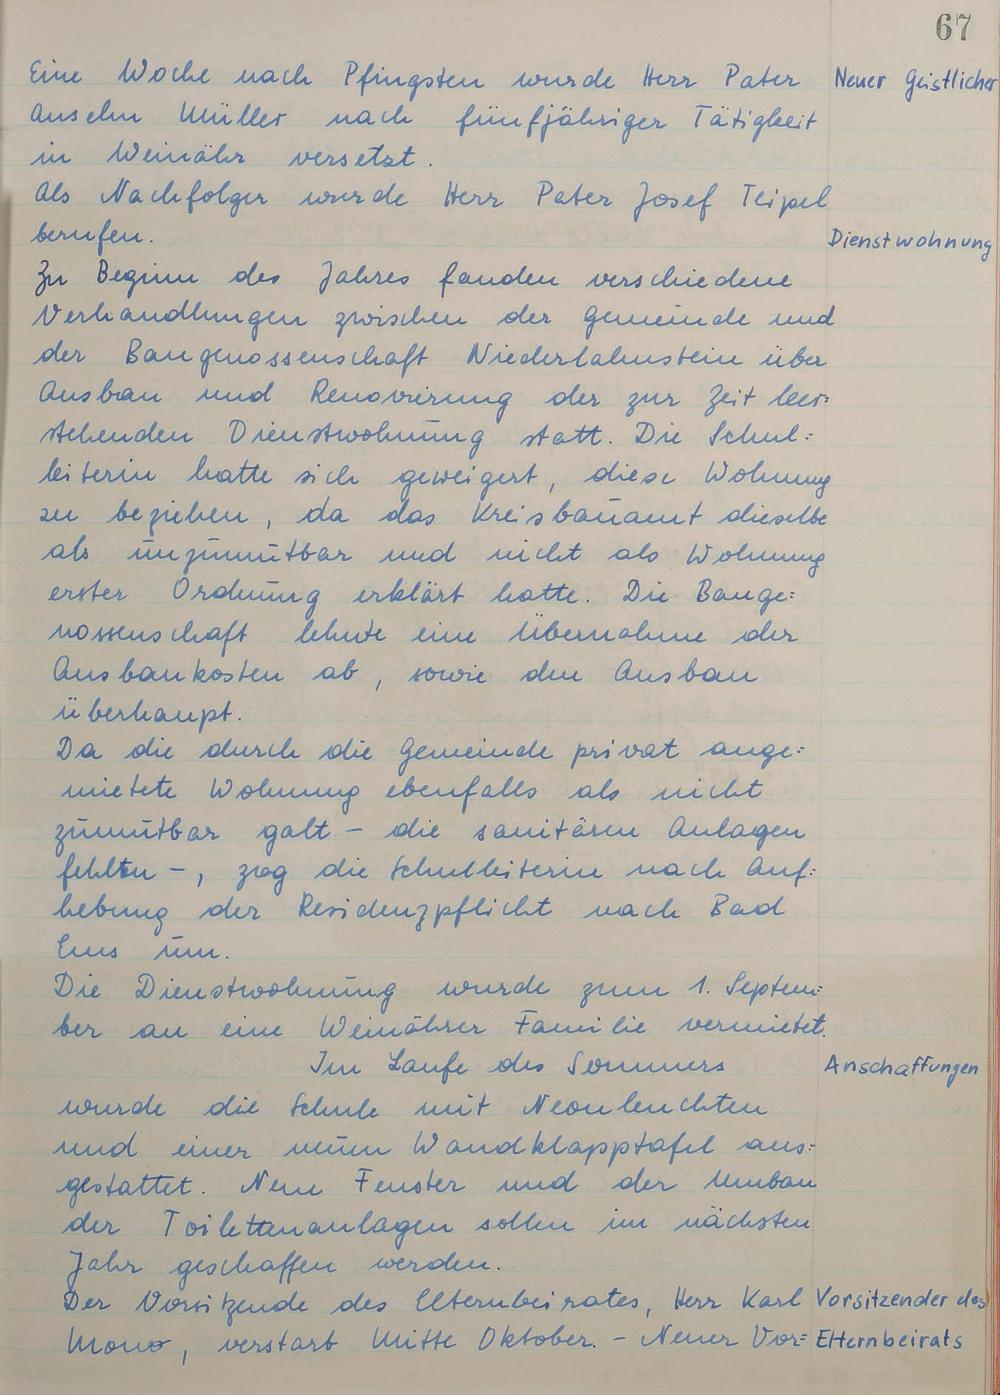 67
Eine Woche nach Pfingsten wurde Herr Pater Neuer Geistlicher
Anselm Müller nach fünfjähriger Tätigkeit
in Weinähr versetzt.
Als Nachfolger wurde Herr Pater Josef Teipel
berufen. Dienstwohnung
Zu Beginn des Jahres fanden verschiedene
Verhandlungen zwischen der Gemeinde und
der Baugenossenschaft Niederlahnstein über
Ausbau und Renovierung der zur Zeit leer=
stehenden Dienstwohnung statt. Die Schul=
leiterin hatte sich geweigert, diese Wohnung
zu beziehen, da das Kreisbauamt dieselbe
als unzumutbar und nicht als Wohnung
erster Ordnung erklärt hatte. Die Bauge=
nossenschaft lehnte eine Übernahme der
Ausbaukosten ab, sowie den Ausbau
überhaupt.
Da die durch die Gemeinde privat ange=
mietete Wohnung ebenfalls als nicht
zumutbar galt – die sanitären Anlagen
fehlten –, zog die Schulleiterin nach Auf=
hebung der Residenzpflicht nach Bad
Ems um.
Die Dienstwohnung wurde zum 1. Septem=
ber an eine Weinährer Familie vermietet.
Im Laufe des Sommers Anschaffungen
wurde die Schule mit Neonleuchten
und einer neuen Wandklapptafel aus=
gestattet. Neue Fenster und der Umbau
der Toilettenanlagen sollen im nächsten
Jahr geschaffen werden.
Der Vorsitzende des Elternbeirates, Herr Karl Vorsitzender des
Mono, verstarb Mitte Oktober. – Neuer Vor= Elternbeirats